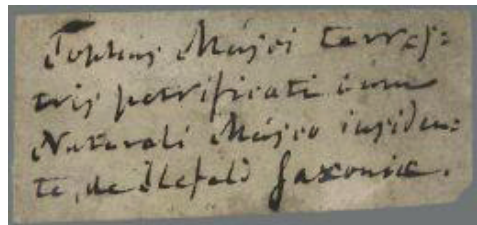 Tophus Musci terres:
tris petrificati cum
Naturali Musco insiden:
te, de Ilefeld Saxoniæ.